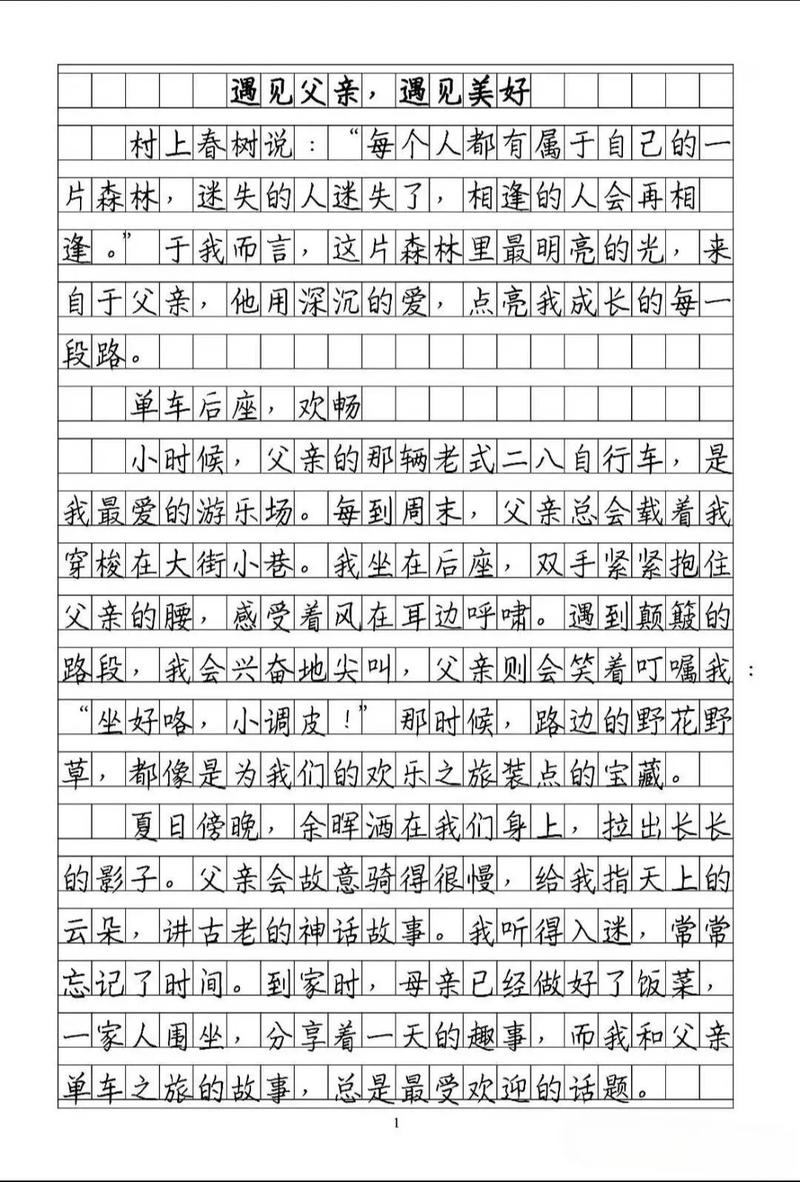 遇见父亲，遇见美好
村上春树说：“每个人都有属于自己的一
片森林，迷失的人迷失了，相逢的人会再相
逢。”于我而言，这片森林里最明亮的光，来
自于父亲，他用深沉的爱，点亮我成长的每一
段路。
单车后座，欢畅
小时候，父亲的那辆老式二八自行车，是
我最爱的游乐场。每到周末，父亲总会载着我
穿梭在大街小巷。我坐在后座，双手紧紧抱住
父亲的腰，感受着风在耳边呼啸。遇到颠簸的
路段，我会兴奋地尖叫，父亲则会笑着叮嘱我：
“坐好咯，小调皮！”那时候，路边的野花野
草，都像是为我们的欢乐之旅装点的宝藏。
夏日傍晚，余晖洒在我们身上，拉出长长
的影子。父亲会故意骑得很慢，给我指天上的
云朵，讲古老的神话故事。我听得入迷，常常
忘记了时间。到家时，母亲已经做好了饭菜，
一家人围坐，分享着一天的趣事，而我和父亲
单车之旅的故事，总是最受欢迎的话题。
1